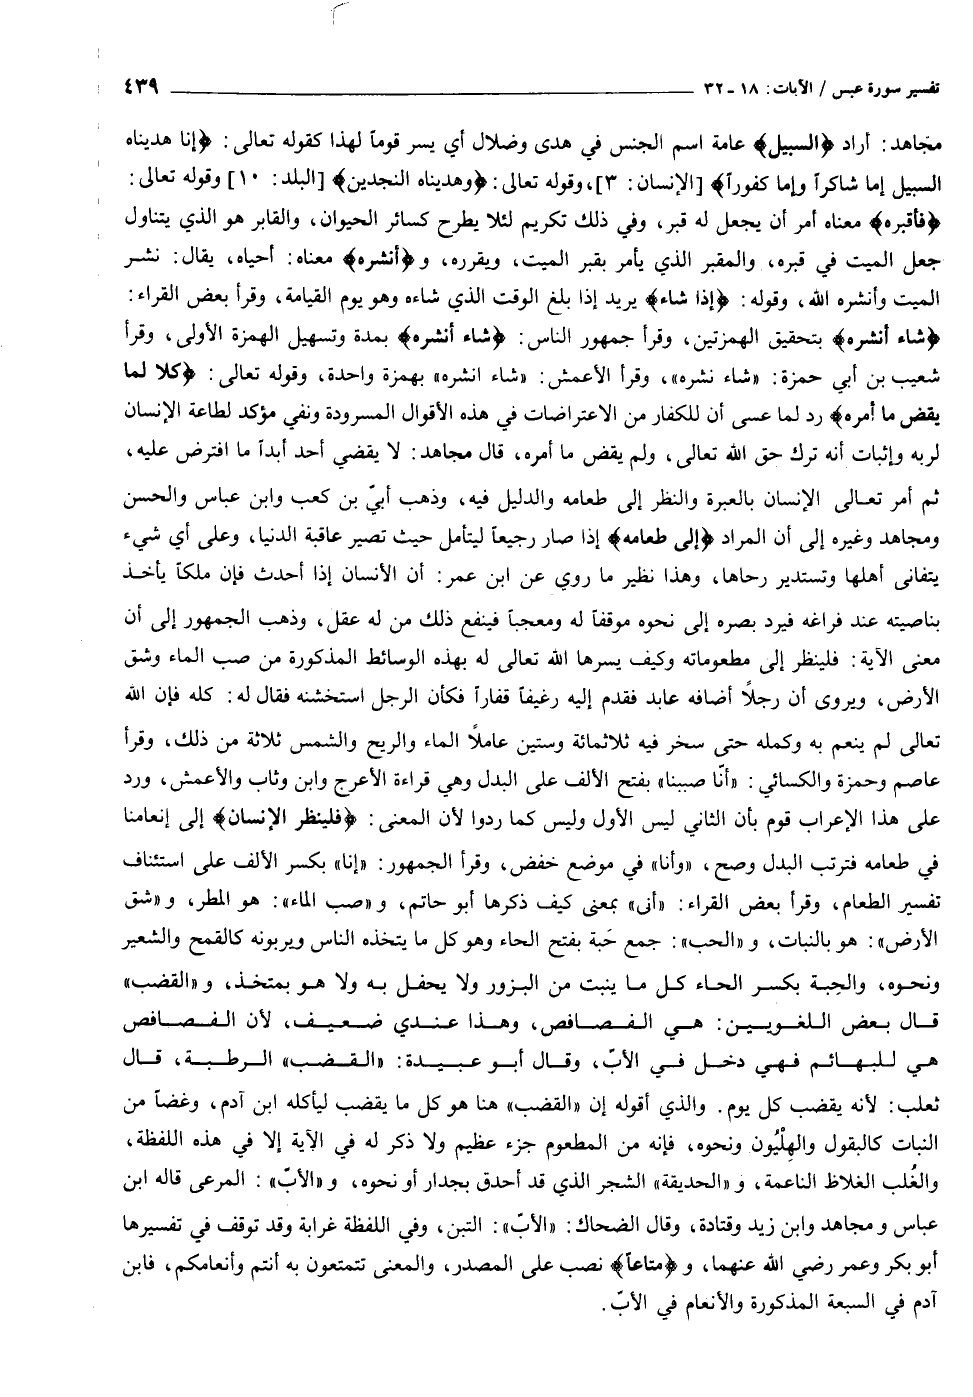 تفسير سورة عبس / الآيات: ١٨ ـ ٣٢ ٤٣٩
مجاهد: أراد ﴿السبيل﴾ عامة اسم الجنس في هدى وضلال أي يسر قوماً لهذا كقوله تعالى: ﴿إنا هديناه
السبيل إما شاكراً وإما كفوراً﴾ [الإنسان: ٣]، وقوله تعالى: ﴿وهديناه النجدين﴾ [البلد: ١٠] وقوله تعالى:
﴿فأقبره﴾ معناه أمر أن يجعل له قبر، وفي ذلك تكريم لئلا يطرح كسائر الحيوان، والقابر هو الذي يتناول
جعل الميت في قبره، والمقبر الذي يأمر بقبر الميت، ويقرره، و﴿أنشره﴾ معناه: أحياه، يقال: نشر
الميت وأنشره الله، وقوله: ﴿إذا شاء﴾ يريد إذا بلغ الوقت الذي شاءه وهو يوم القيامة، وقرأ بعض القراء:
﴿شاء أنشره﴾ بتحقيق الهمزتين، وقرأ جمهور الناس: ﴿شاء أنشره﴾ بمدة وتسهيل الهمزة الأولى، وقرأ
شعيب بن أبي حمزة: «شاء نشره»، وقرأ الأعمش: «شاء انشره» بهمزة واحدة، وقوله تعالى: ﴿كلا لما
يقض ما أمره﴾ رد لما عسى أن للكفار من الاعتراضات في هذه الأقوال المسرودة ونفي مؤكد لطاعة الإنسان
لربه وإثبات أنه ترك حق الله تعالى، ولم يقض ما أمره، قال مجاهد: لا يقضي أحد أبداً ما افترض عليه،
ثم أمر تعالى الإنسان بالعبرة والنظر إلى طعامه والدليل فيه، وذهب أبيّ بن كعب وابن عباس والحسن
ومجاهد وغيره إلى أن المراد ﴿إلى طعامه﴾ إذا صار رجيعاً ليتأمل حيث تصير عاقبة الدنيا، وعلى أي شيء
يتفانى أهلها وتستدير رحاها، وهذا نظير ما روي عن ابن عمر: أن الأنسان إذا أحدث فإن ملكاً يأخذ
بناصيته عند فراغه فيرد بصره إلى نحوه موقفاً له ومعجباً فينفع ذلك من له عقل، وذهب الجمهور إلى أن
معنى الآية: فلينظر إلى مطعوماته وكيف يسرها الله تعالى له بهذه الوسائط المذكورة من صب الماء وشق
الأرض، ويروى أن رجلاً أضافه عابد فقدم إليه رغيفاً قفاراً فكأن الرجل استخشنه فقال له: كله فإن الله
تعالى لم ينعم به وكمله حتى سخر فيه ثلاثمائة وستين عاملاً الماء والريح والشمس ثلاثة من ذلك، وقرأ
عاصم وحمزة والكسائي: «أنّا صببنا» بفتح الألف على البدل وهي قراءة الأعرج وابن وثاب والأعمش، ورد
على هذا الإعراب قوم بأن الثاني ليس الأول وليس كما ردوا لأن المعنى: ﴿فلينظر الإنسان﴾ إلى إنعامنا
في طعامه فترتب البدل وصح، «وأنا» في موضع خفض، وقرأ الجمهور: «إنا» بكسر الألف على استئناف
تفسير الطعام، وقرأ بعض القراء: «أنى» بمعنى كيف ذكرها أبو حاتم، و«صب الماء»: هو المطر، و«شق
الأرض»: هو بالنبات، و«الحب»: جمع حَبة بفتح الحاء وهو كل ما يتخذه الناس ويربونه كالقمح والشعير
ونحوه، والحِبة بكسر الحاء كل ما ينبت من البزور ولا يحفل به ولا هو بمتخذ، و«القضب»
قال بعض اللغويين: هي الفصافص، وهذا عندي ضعيف، لأن الفصافص
هي للبهائم فهي دخل في الأبّ، وقال أبو عبيدة: «القضب» الرطبة، قال
ثعلب: لأنه يقضب كل يوم. والذي أقوله إن «القضب» هنا هو كل ما يقضب ليأكله ابن آدم، وغضاً من
النبات كالبقول والهِلْيُون ونحوه، فإنه من المطعوم جزء عظيم ولا ذكر له في الآية إلا في هذه اللفظة،
والغُلب الغلاظ الناعمة، و«الحديقة» الشجر الذي قد أحدق بجدار أو نحوه، و«الأبّ»: المرعى قاله ابن
عباس ومجاهد وابن زيد وقتادة، وقال الضحاك: «الأبّ»: التبن، وفي اللفظة غرابة وقد توقف في تفسيرها
أبو بكر وعمر رضي الله عنهما، و﴿متاعاً﴾ نصب على المصدر، والمعنى تتمتعون به أنتم وأنعامكم، فابن
آدم في السبعة المذكورة والأنعام في الأبّ.